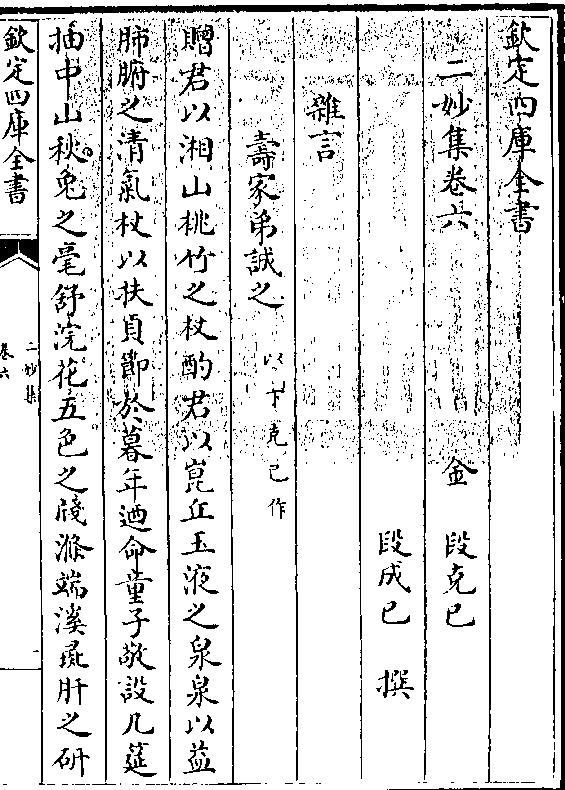 欽定四庫全書
二妙集卷六
金　段克己
段成己　撰
雜言
壽家弟誠之以下克己作
贈君以湘山桃竹之杖酌君以崑丘玉液之泉泉以益
肺腑之清氣杖以扶貞節於暮年迺命童子敬設几筵
抽中山秋兔之毫舒浣花五色之牋滌端溪乕肝之硏
欽定四庫全書
二妙集
卷六
一